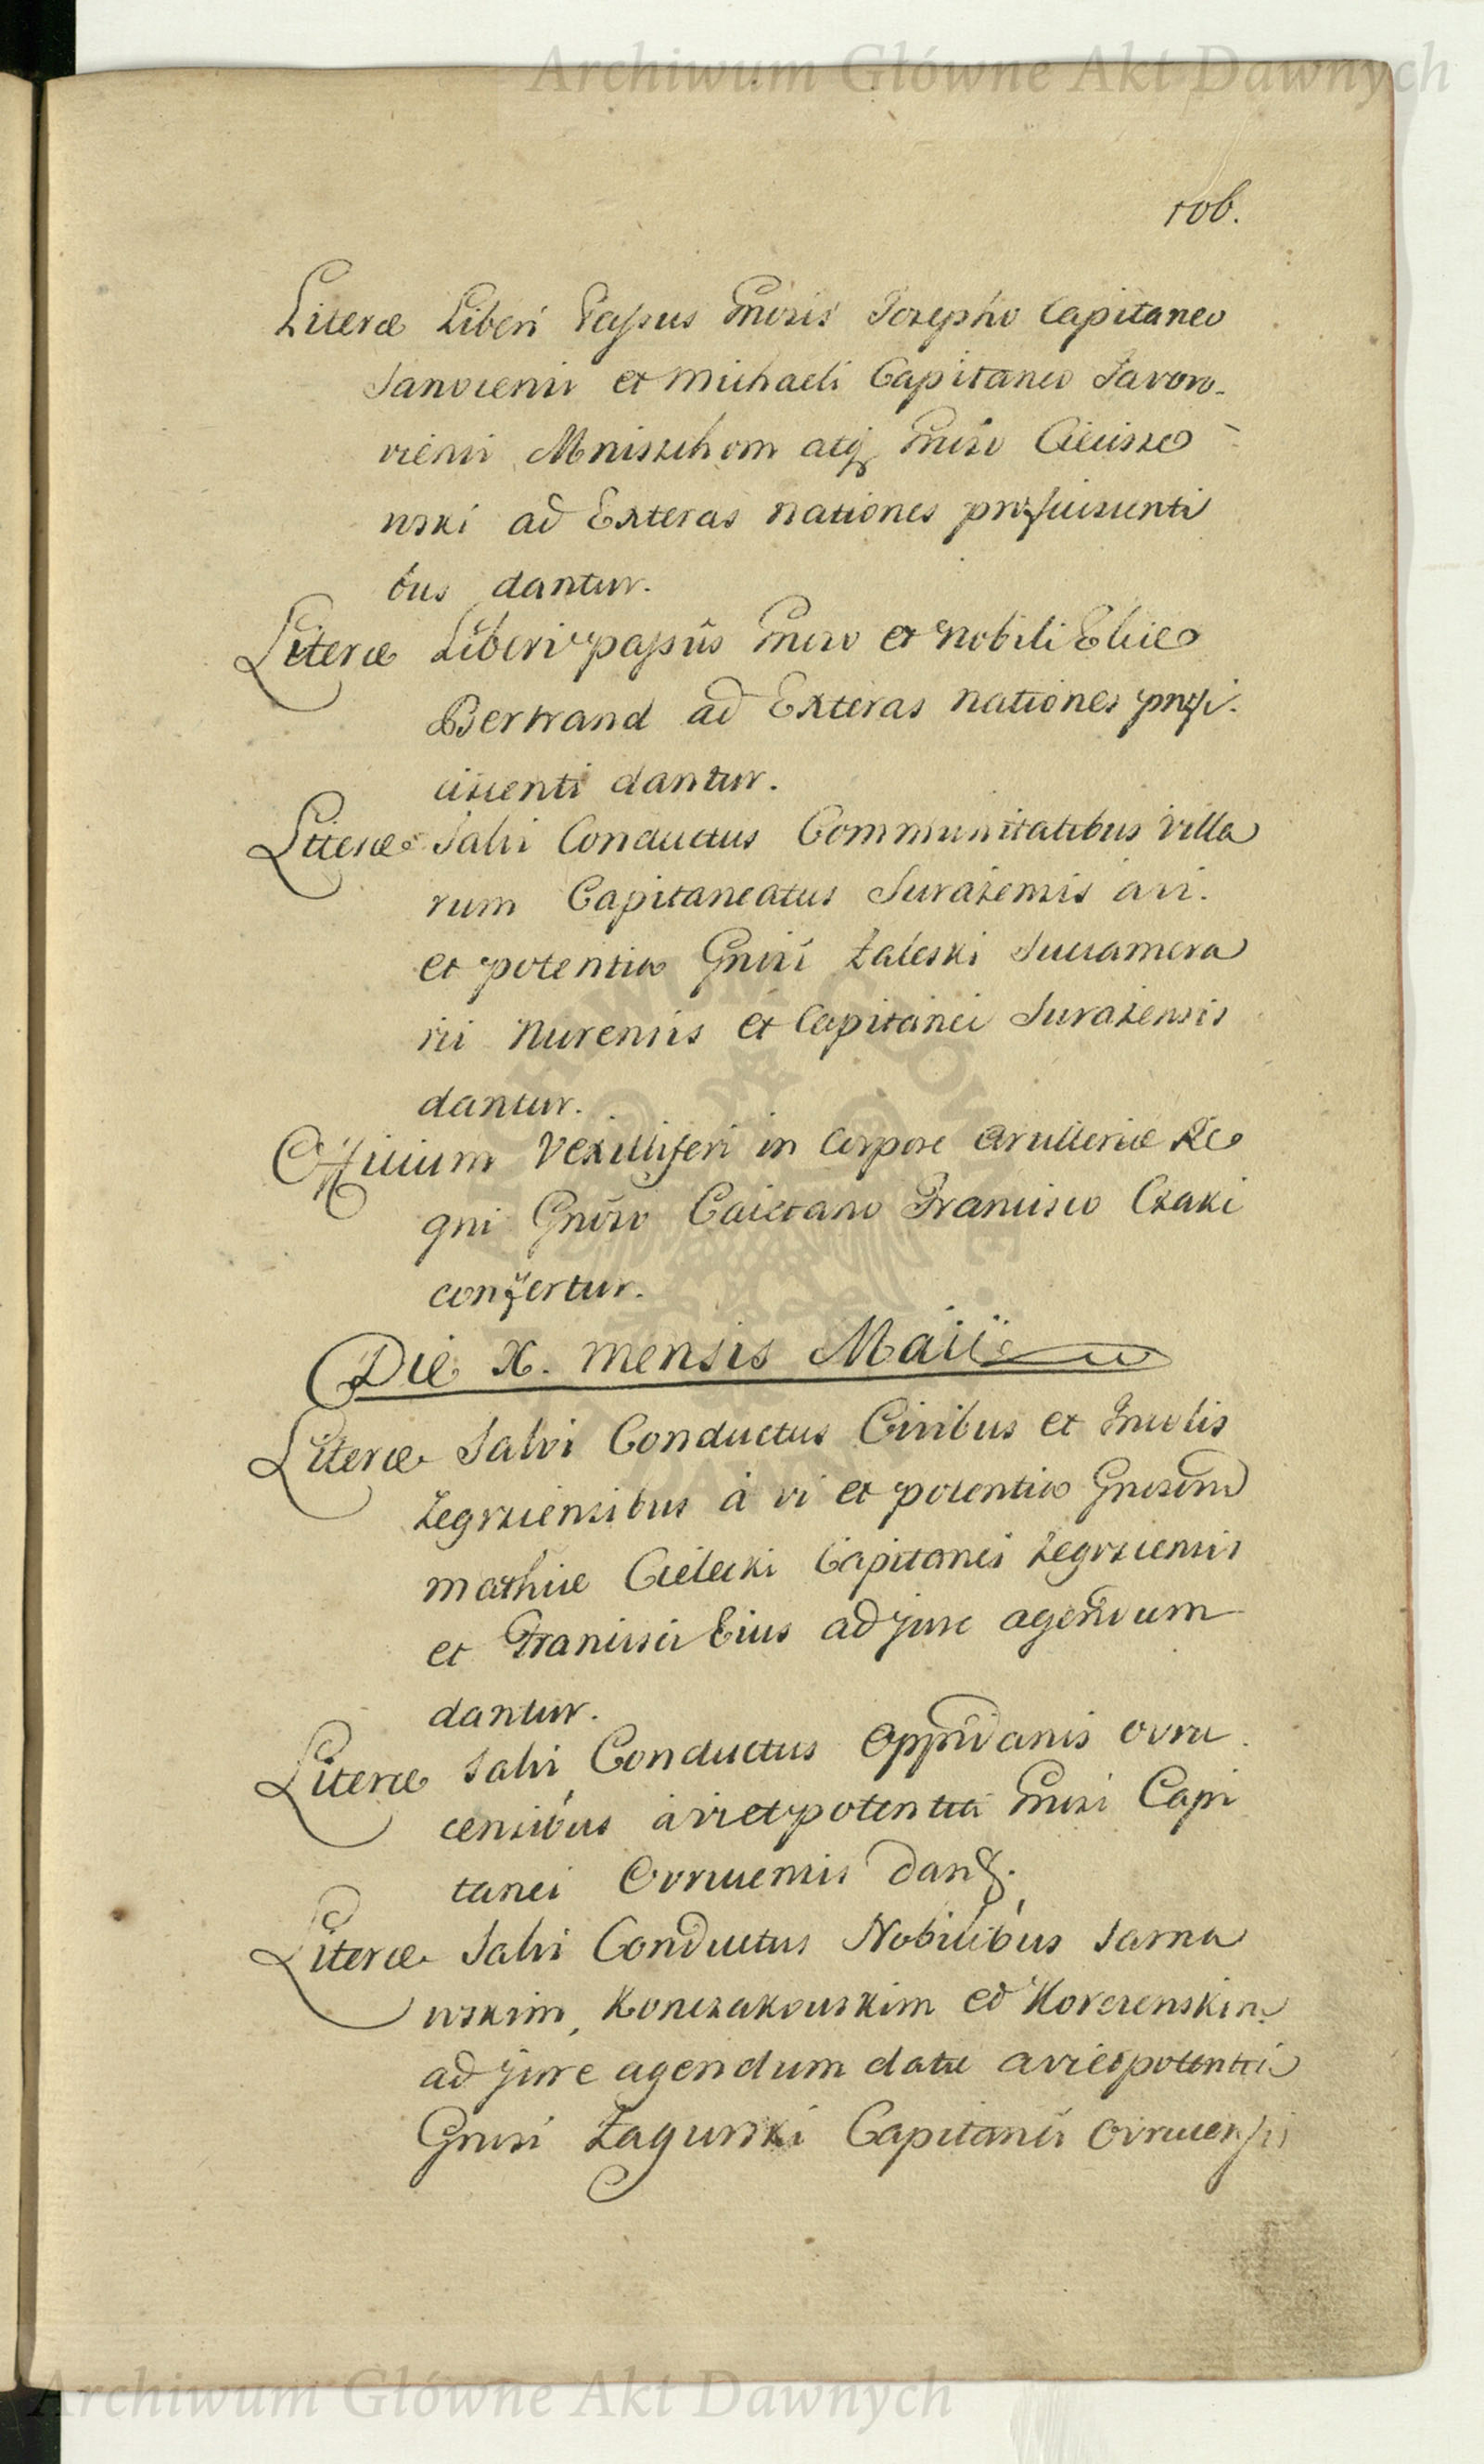 Archiwum Główne Akt Dawnych
106.
Literæ Liberi Passus Gnosis Josepho Capitaneo
Sanocensi et Michaeli Capitaneo Javoro-
viensi Mniszchom atq Gnoso
nski ad Exteras nationes proficiscenti
bus dantur.
Literæ Liberi passus Gnoso et Nobili Eliæ
Bertrand ad Exteras nationes profi-
ciscenti dantur.
Literæ Salvi Conductus Communitatibus villa
rum Capitaneatus Surazensis a vi
et potentia Gnosi Zaleski Succamera
rii Nurensis et Capitanei Surazensis
dantur.
Officium Vexilliferi in Corpore Artilleriæ Re
gni Gnoso Caietano Francisco Czaki
confertur.
Die X. mensis Maii
Literæ Salvi Conductus Civibus et Incolis
Zegrzcensibus à vi et potentia Gnosorum
Mathiæ Cielecki Capitanei Zegrzcensis
et Francisci Eius ad jure agendum
dantur.
Literæ Salvi Conductus Oppidanis Ovru
censibus à vi et potentia Gnosi Capi
tanei Ovrucensis dant.
Literæ Salvi Conductus Nobilibus Sarna
wskim, Konczakowskim et
ad jure agendum datæ a vi et potentia
Gnosi Zagurski Capitanei Ovrucensis
ARCHIWUM GŁÓWNE AKT DAWNYCH
Archiwum Główne Akt Dawnych